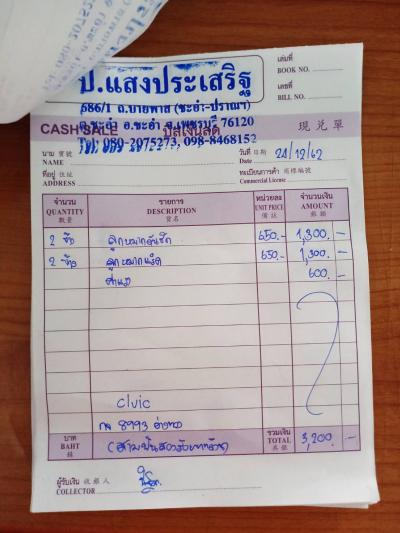 ป.แสงประเสริฐ
686/1 ถ.บายพาส (ชะอำ-ปราณฯ)
อ.ชะอำ จ.เพชรบุรี 76120
โทร. 089-2075273, 098-8468152
เล่มที่
BOOK NO.
เลขที่
BILL NO.
CASH SALE บิลเงินสด 現兌單
นาม 寶號
NAME
วันที่ 日期 24/12/62
Date
ที่อยู่ 住址
ADDRESS
ทะเบียนการค้า 商標編號
Commercial License
จำนวน รายการ หน่วยละ จำนวนเงิน
QUANTITY DESCRIPTION UNIT PRICE AMOUNT
數量 貨名 備註
2 ลูกหมาก 650.- 1,300.-
2 ลูกหมาก 650.- 1,300.-
600.-
Civic
กจ 8993 อ่างทอง
บาท รวมเงิน
BAHT (สามพันสองร้อยบาทถ้วน) TOTAL 3,200.-
ผู้รับเงิน 收銀人
COLLECTOR